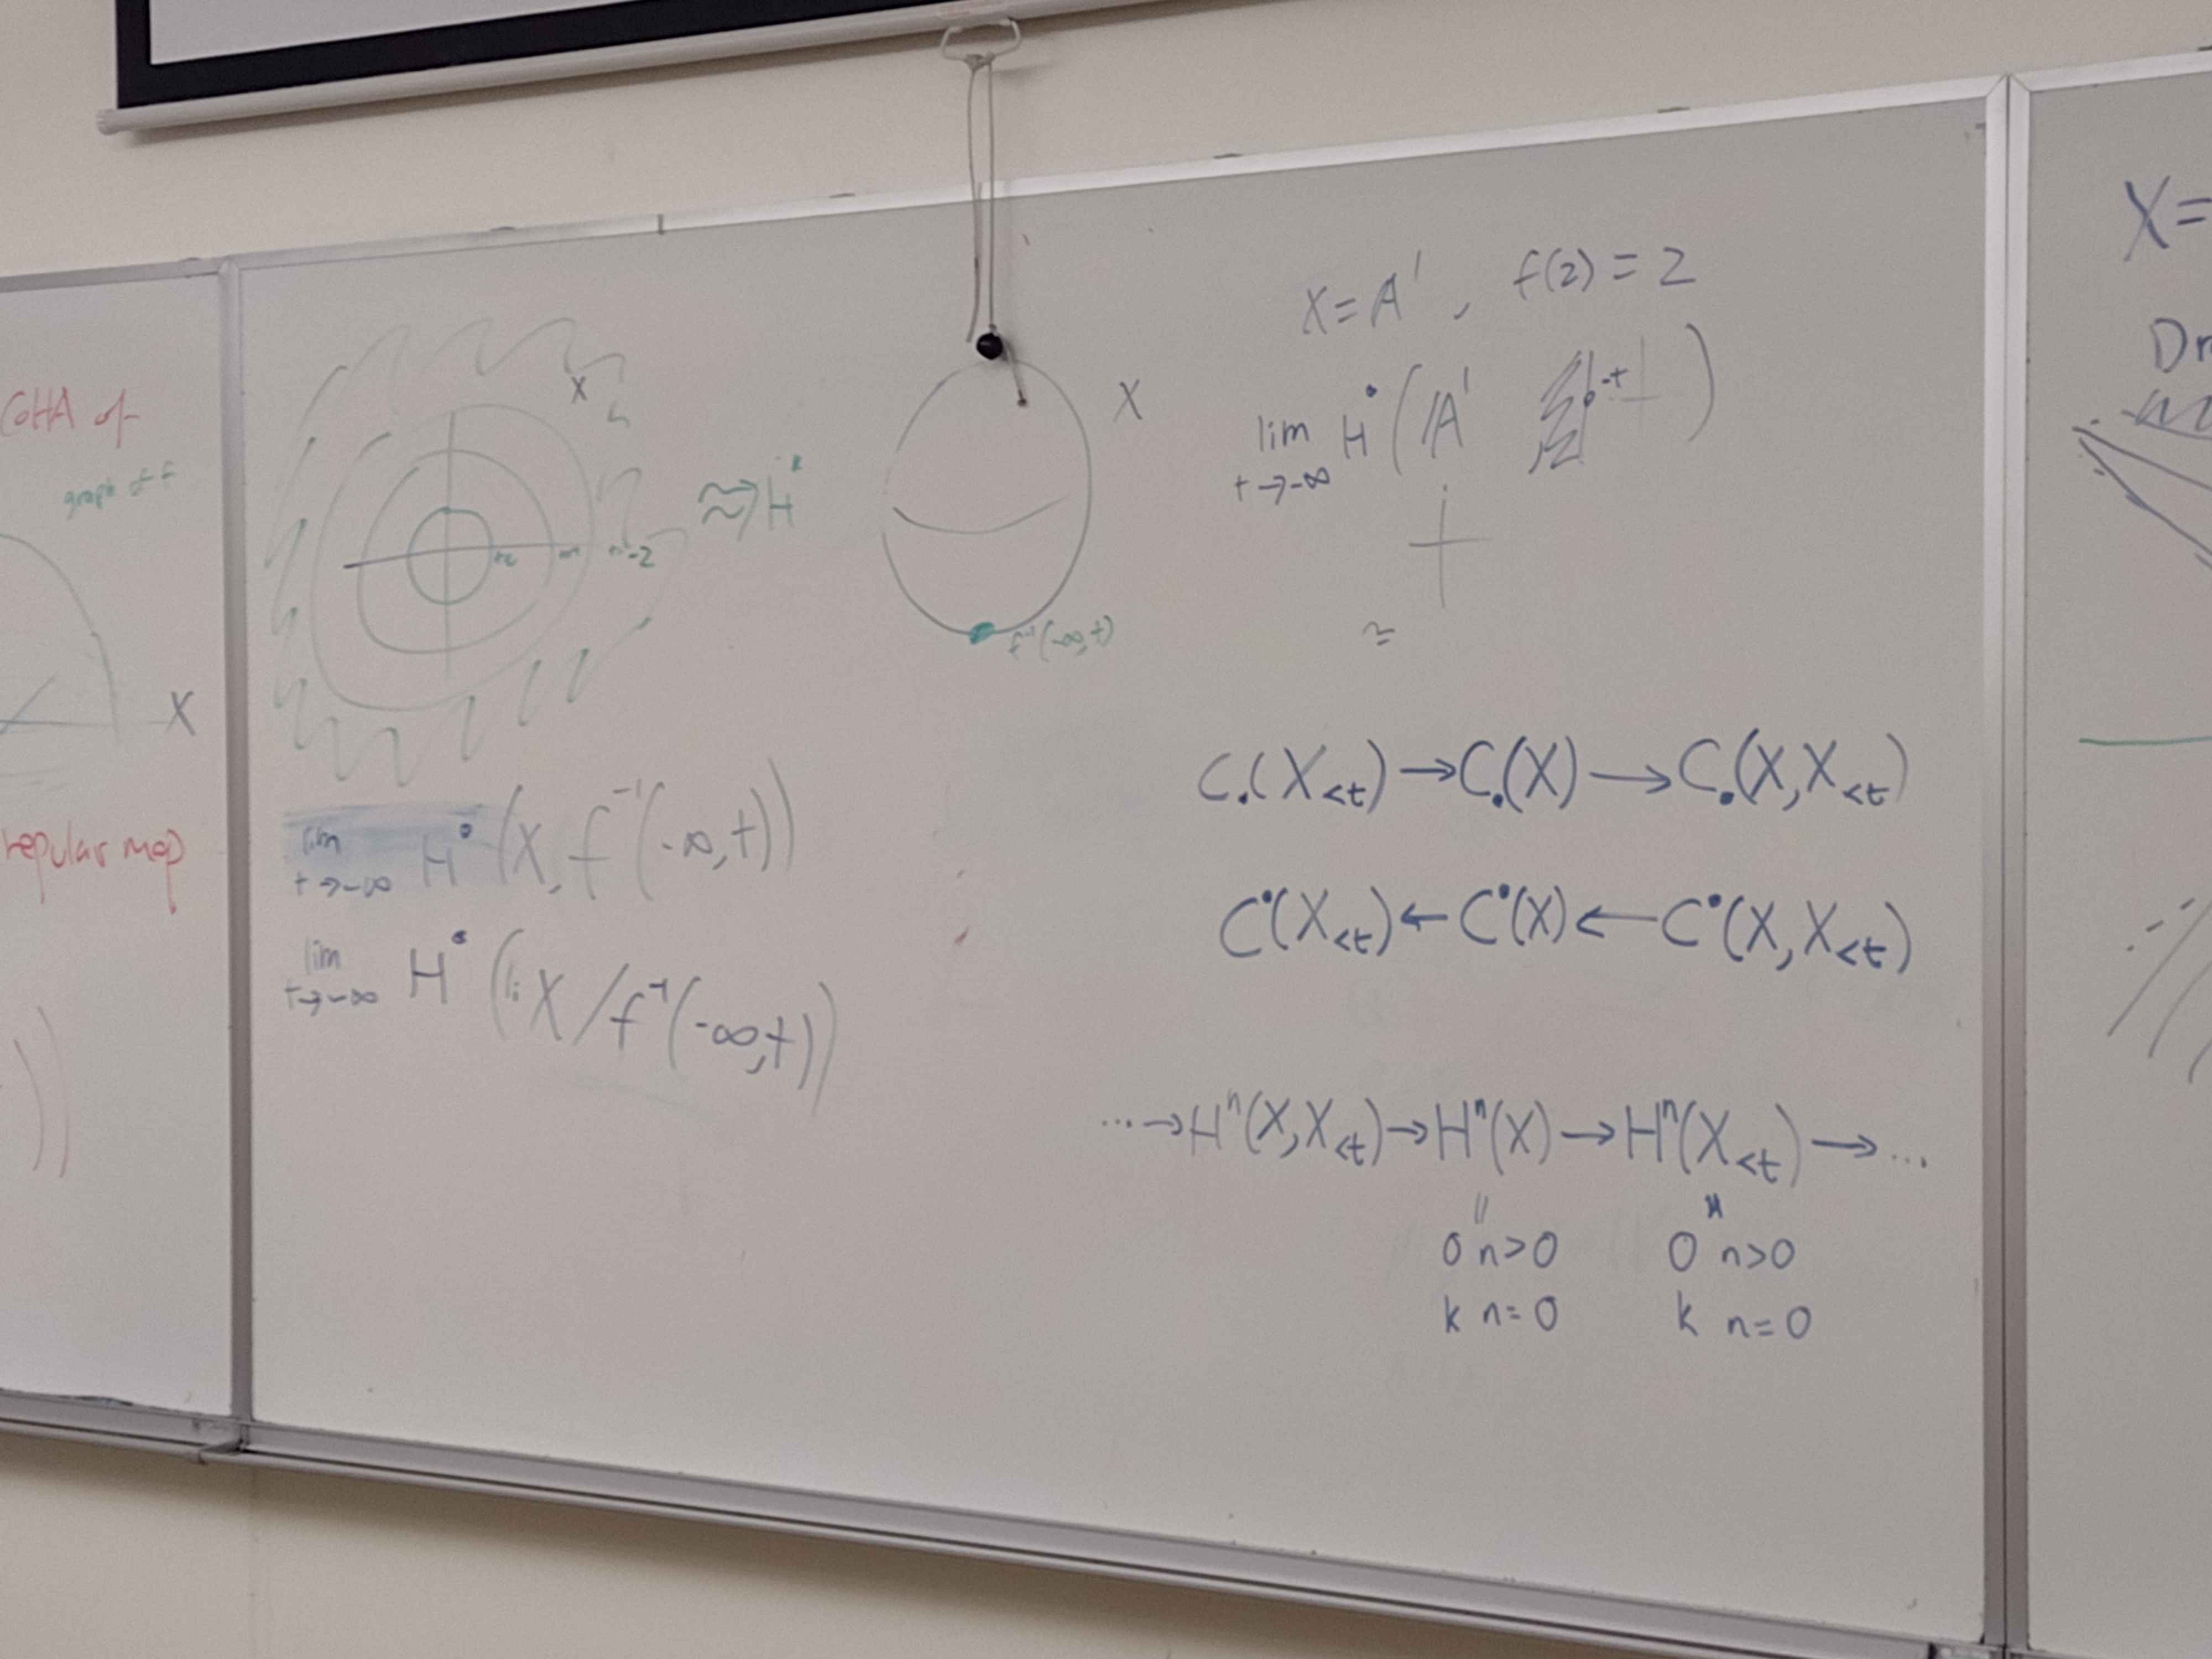 COHA of
graph of f
X
regular map
X
-2
≈> H*
X
f⁻¹(-∞,t)
lim t→-∞ H•(X, f⁻¹(-∞,t))
lim t→-∞ H•(X/f⁻¹(-∞,t))
X = A¹, f(z) = z
lim t→-∞ H•(A¹ -t)
≃
C.(X<t) → C.(X) → C.(X, X<t)
C•(X<t) ← C•(X) ← C•(X, X<t)
... → Hⁿ(X, X<t) → Hⁿ(X) → Hⁿ(X<t) → ...
0 n>0 0 n>0
k n=0 k n=0
X=